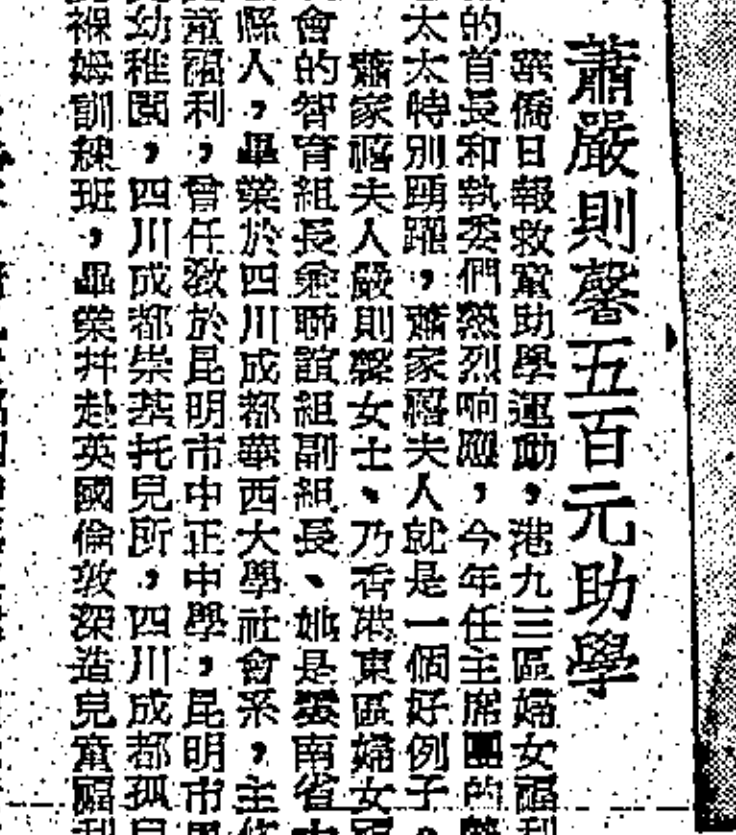 蕭嚴則馨五百元助學
華僑日報救童助學運動，港九三區婦女福利
的首長和執委們熱烈响應，今年任主席團的
太太特別踴躍，蕭家禧夫人就是一個好例子。
蕭家禧夫人嚴則馨女士、乃香港東區婦女福
會的智育組長兼聯誼組副組長、她是雲南省
縣人，畢業於四川成都華西大學社會系，主修
童福利，曾任教於昆明市中正中學，昆明市
幼稚園，四川成都崇基托兒所，四川成都孤兒
褓姆訓練班，畢業并赴英國倫敦深造兒童福利